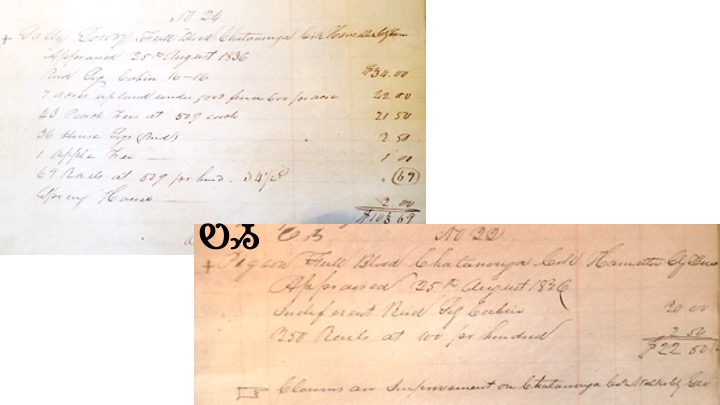 No 24
+ Sally Lowry Full Blood Chatanooga Crk Hamilton Cty Tenn
Appraised 25th August 1836
Rnd Log Cabin 16-16 $34.00
7 acres upland under good fence 600 pr acre
43 Peach Trees at 50¢ each 21 50
36 House Logs (Rnd) 2 50
1 Apple Tree 1 00
69 Rails at 50¢ pr hund (69)
Spring House 2.00
$103 69
ᎧᏱ No 22
+ Pigeon Full Blood Chatanooga Crk Hamilton Cty Tenn
Appraised 25th August 1836
Indiferent Rnd Log Cabin 20 00
250 Rails at 100 pr hundred 2 50
$22 50
Claims an Improvement on Chatanooga Crk Walker Cty Geo